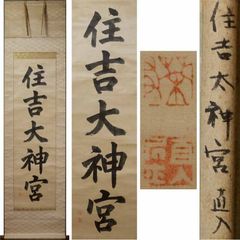 住吉大神宮
住吉大神宮
住吉太神宮 直入